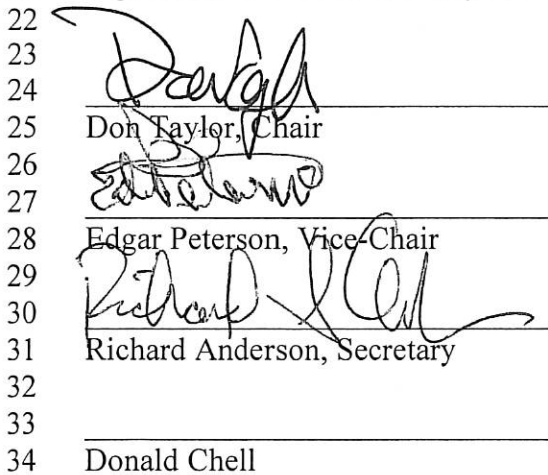 22
23
24
25 Don Taylor, Chair
26
27
28 Edgar Peterson, Vice-Chair
29
30
31 Richard Anderson, Secretary
32
33
34 Donald Chell